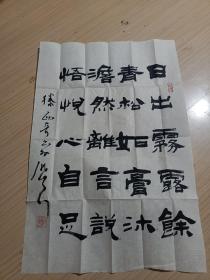 日出霧露餘
青松如膏沐
澹然離言說
悟悅心自足